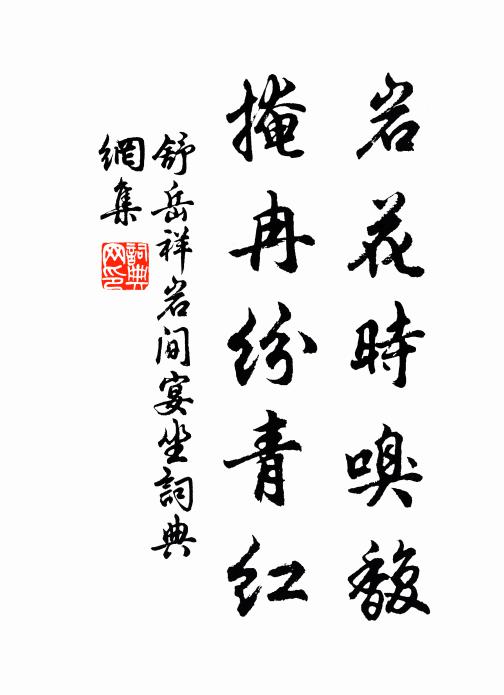 岩花時嗅馥
掩冉紛青红
舒岳祥岩间宴坐詞典
網集
詞典网印